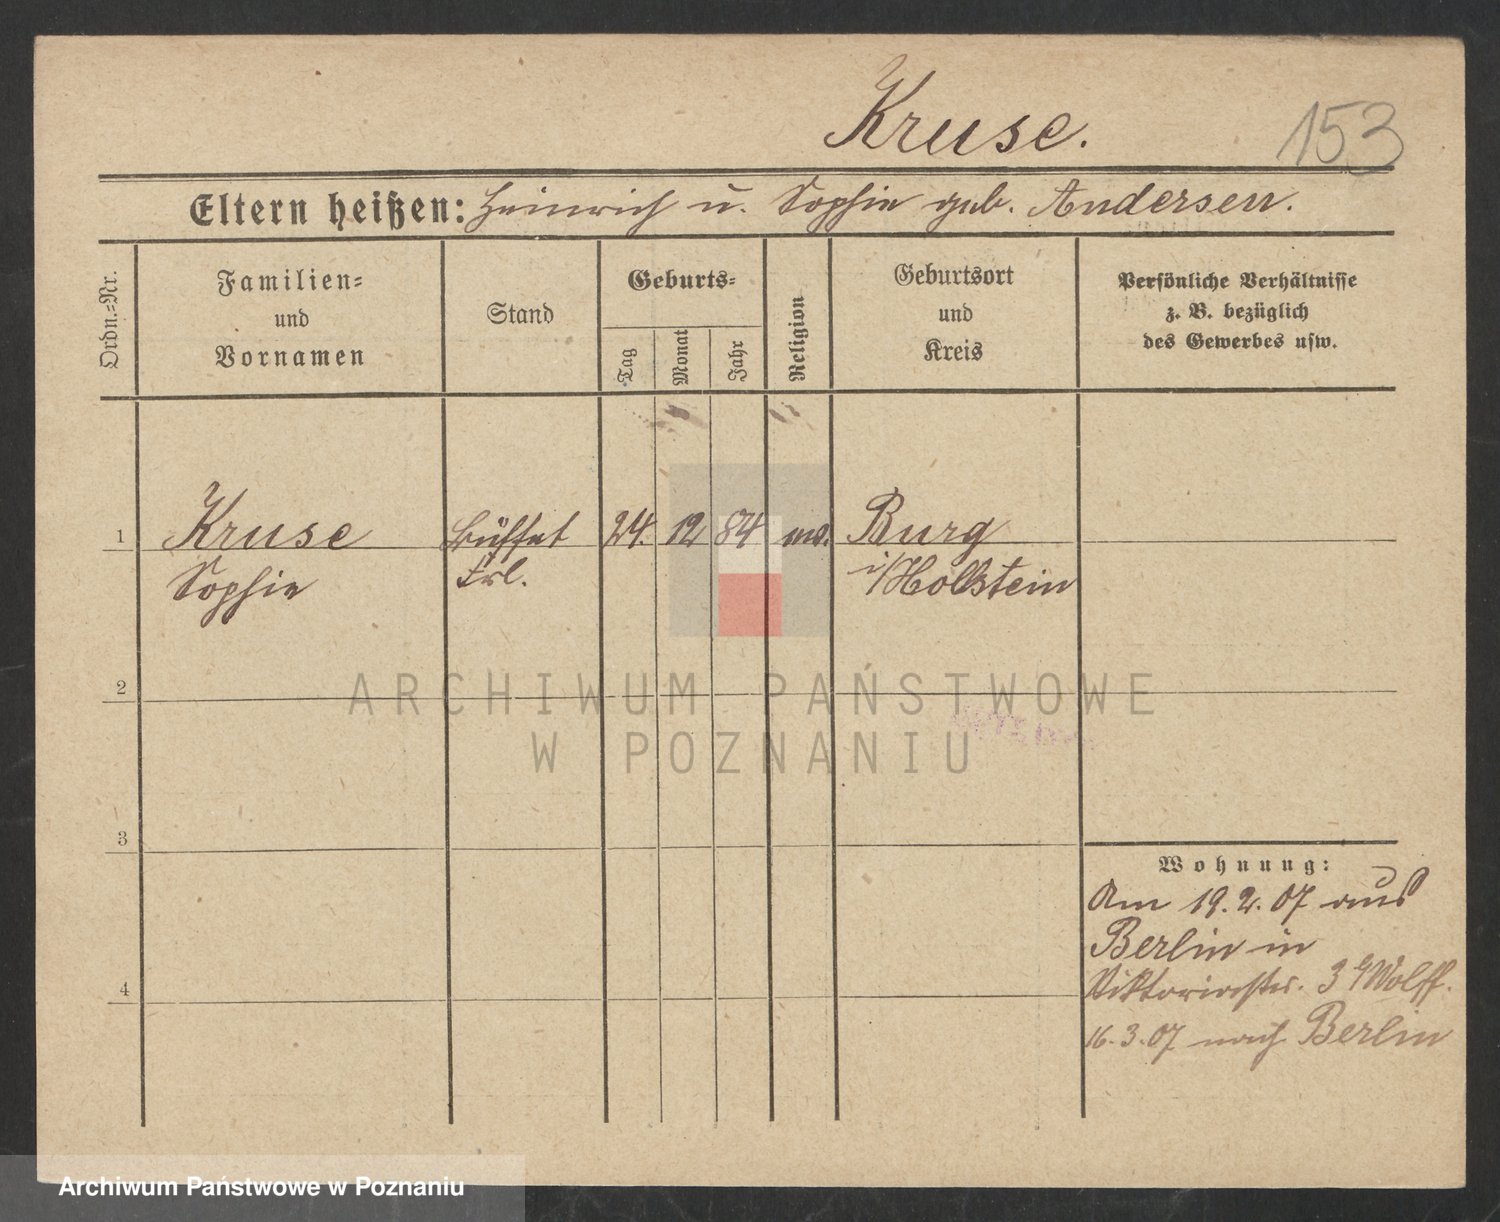 Kruse. 153
Eltern heißen: Heinrich u. Sophie geb. Andersen.
Ordn.=Nr.
Familien=
und
Vornamen
Stand
Geburts=
Tag
Monat
Jahr
Religion
Geburtsort
und
Kreis
Persönliche Verhältnisse
z. B. bezüglich
des Gewerbes usw.
1 Kruse Büffet 24. 12 84 ev. Burg
Sophie Frl. i/Holstein
2
ARCHIWUM PAŃSTWOWE
W POZNANIU
3
Wohnung:
Am 19.2.07 aus
Berlin in
Viktoriastr. 3 Wolff.
4
16.3.07 nach Berlin
Archiwum Państwowe w Poznaniu